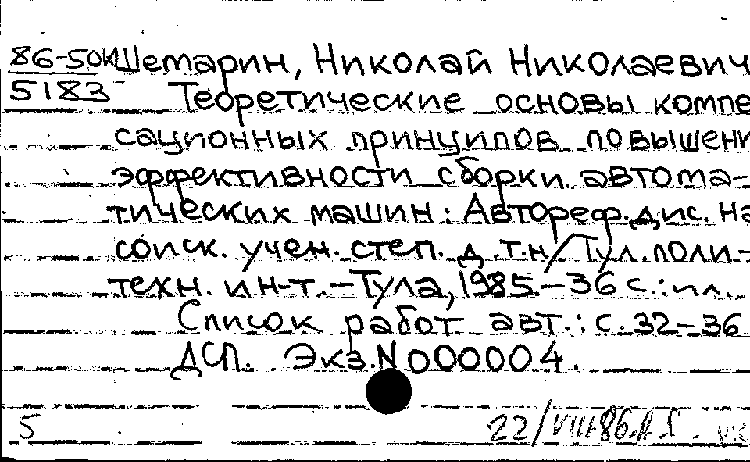 86-50к Шемарин, Николай Николаевич
5183 Теоретические основы компе
сационных принципов повышени
эффективности сборки автома-
тических машин: Автореф. дис. на
соиск. учен. степ. д.т.н/Тул. поли-
техн. ин-т. - Тула, 1985. - 36 с.: ил.
Список работ авт.: с. 32-36
ДСП. Экз. N 000004.
5 22/VIII-86